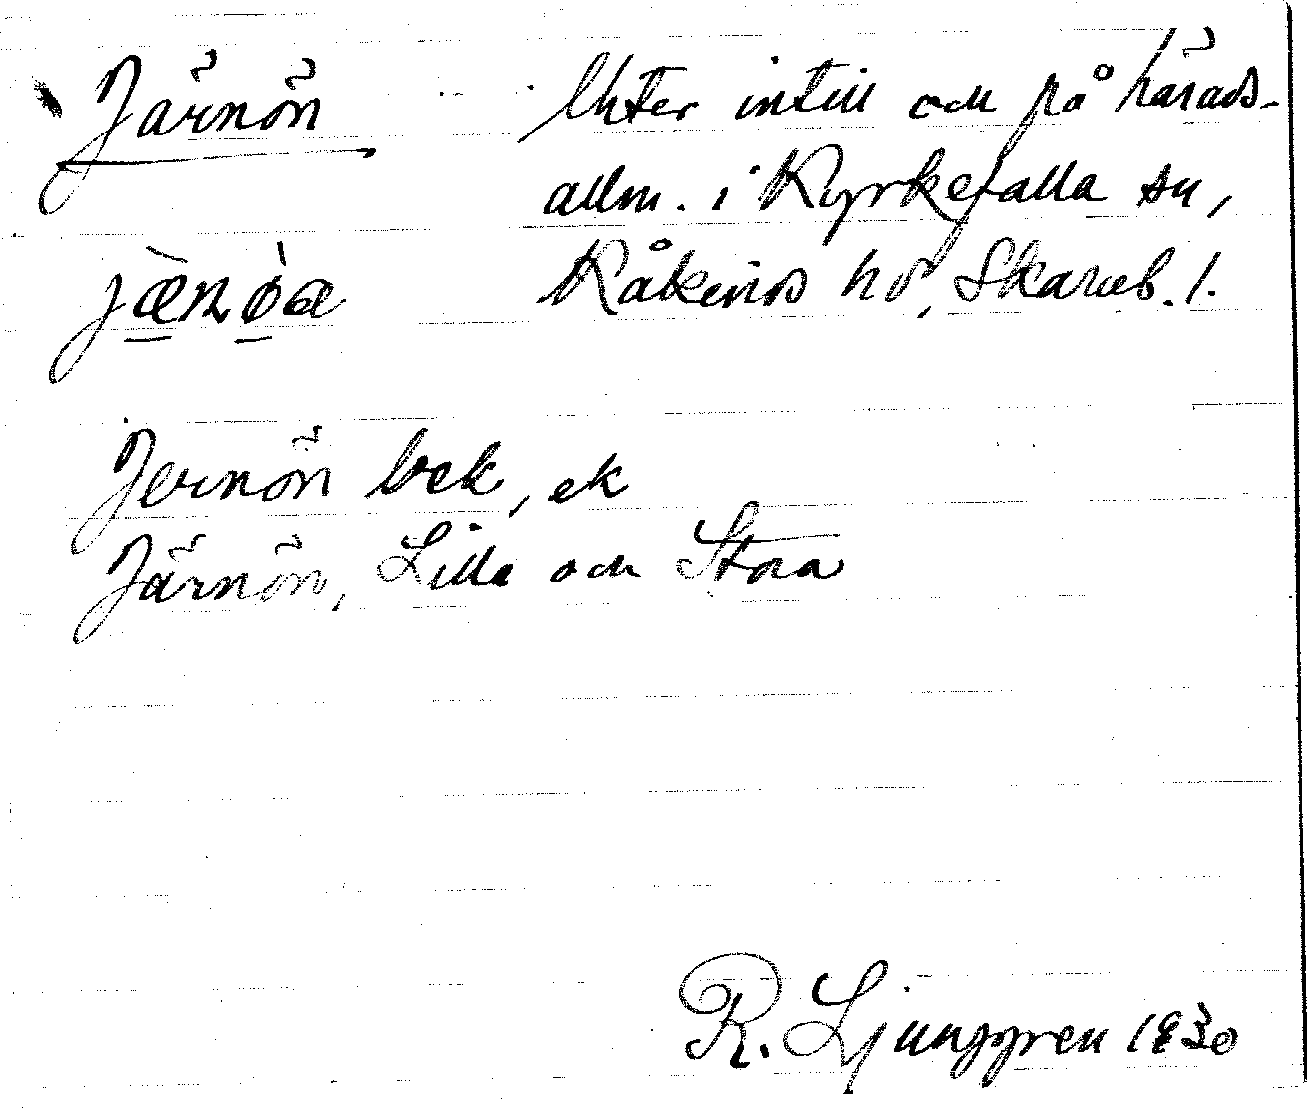 Järnön Uter intill och på härads-
allm. i Kyrkefalla sn,
jænøa Kåkinds hd, Skarab. l.
Jernön bek, ek
Järnön, Lilla och Stora
R. Ljunggren 1930